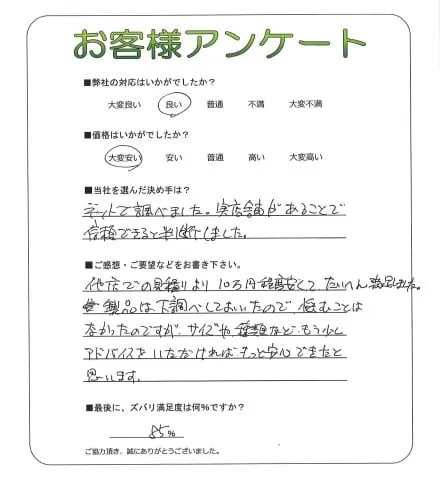 お客様アンケート
■弊社の対応はいかがでしたか？
大変良い 良い 普通 不満 大変不満
■価格はいかがでしたか？
大変安い 安い 普通 高い 大変高い
■当社を選んだ決め手は？
ネットで調べました。実店舗があることで
信頼できると判断しました。
■ご感想・ご要望などをお書き下さい。
他店での見積りより10万円程度安くてたいへん満足しました。
製品は下調べしておいたので悩むことは
なかったのですが、サイズや種類など、もう少し
アドバイスをいただければもっと安心できたと
思います。
■最後に、ズバリ満足度は何％ですか？
85%
ご協力頂き、誠にありがとうございました。